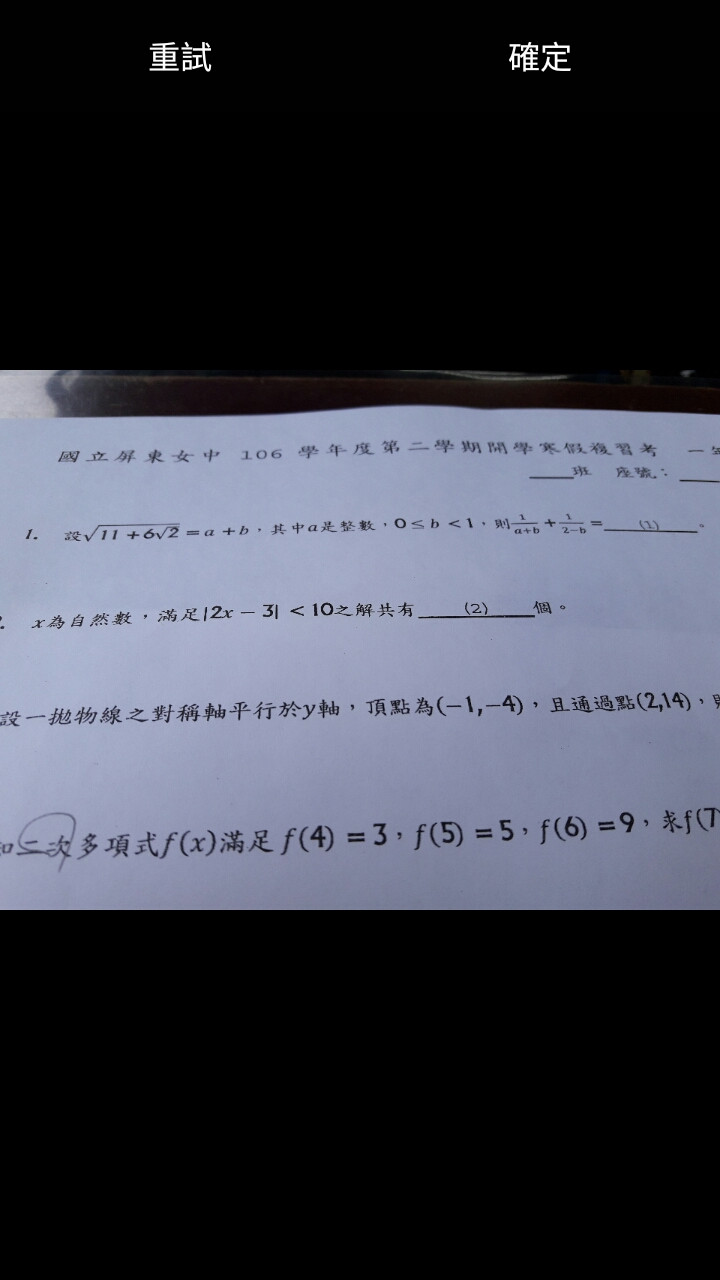 重試 確定
國立屏東女中 106 學年度第二學期開學寒假複習考 一
____班 座號：____
1. 設√(11 + 6√2) = a + b，其中a是整數，0 ≤ b < 1，則 1/(a+b) + 1/(2−b) = ____(1)____。
x為自然數，滿足|2x − 3| < 10之解共有____(2)____個。
設一拋物線之對稱軸平行於y軸，頂點為(−1,−4)，且通過點(2,14)，
二次多項式f(x)滿足 f(4) = 3，f(5) = 5，f(6) = 9，求f(7